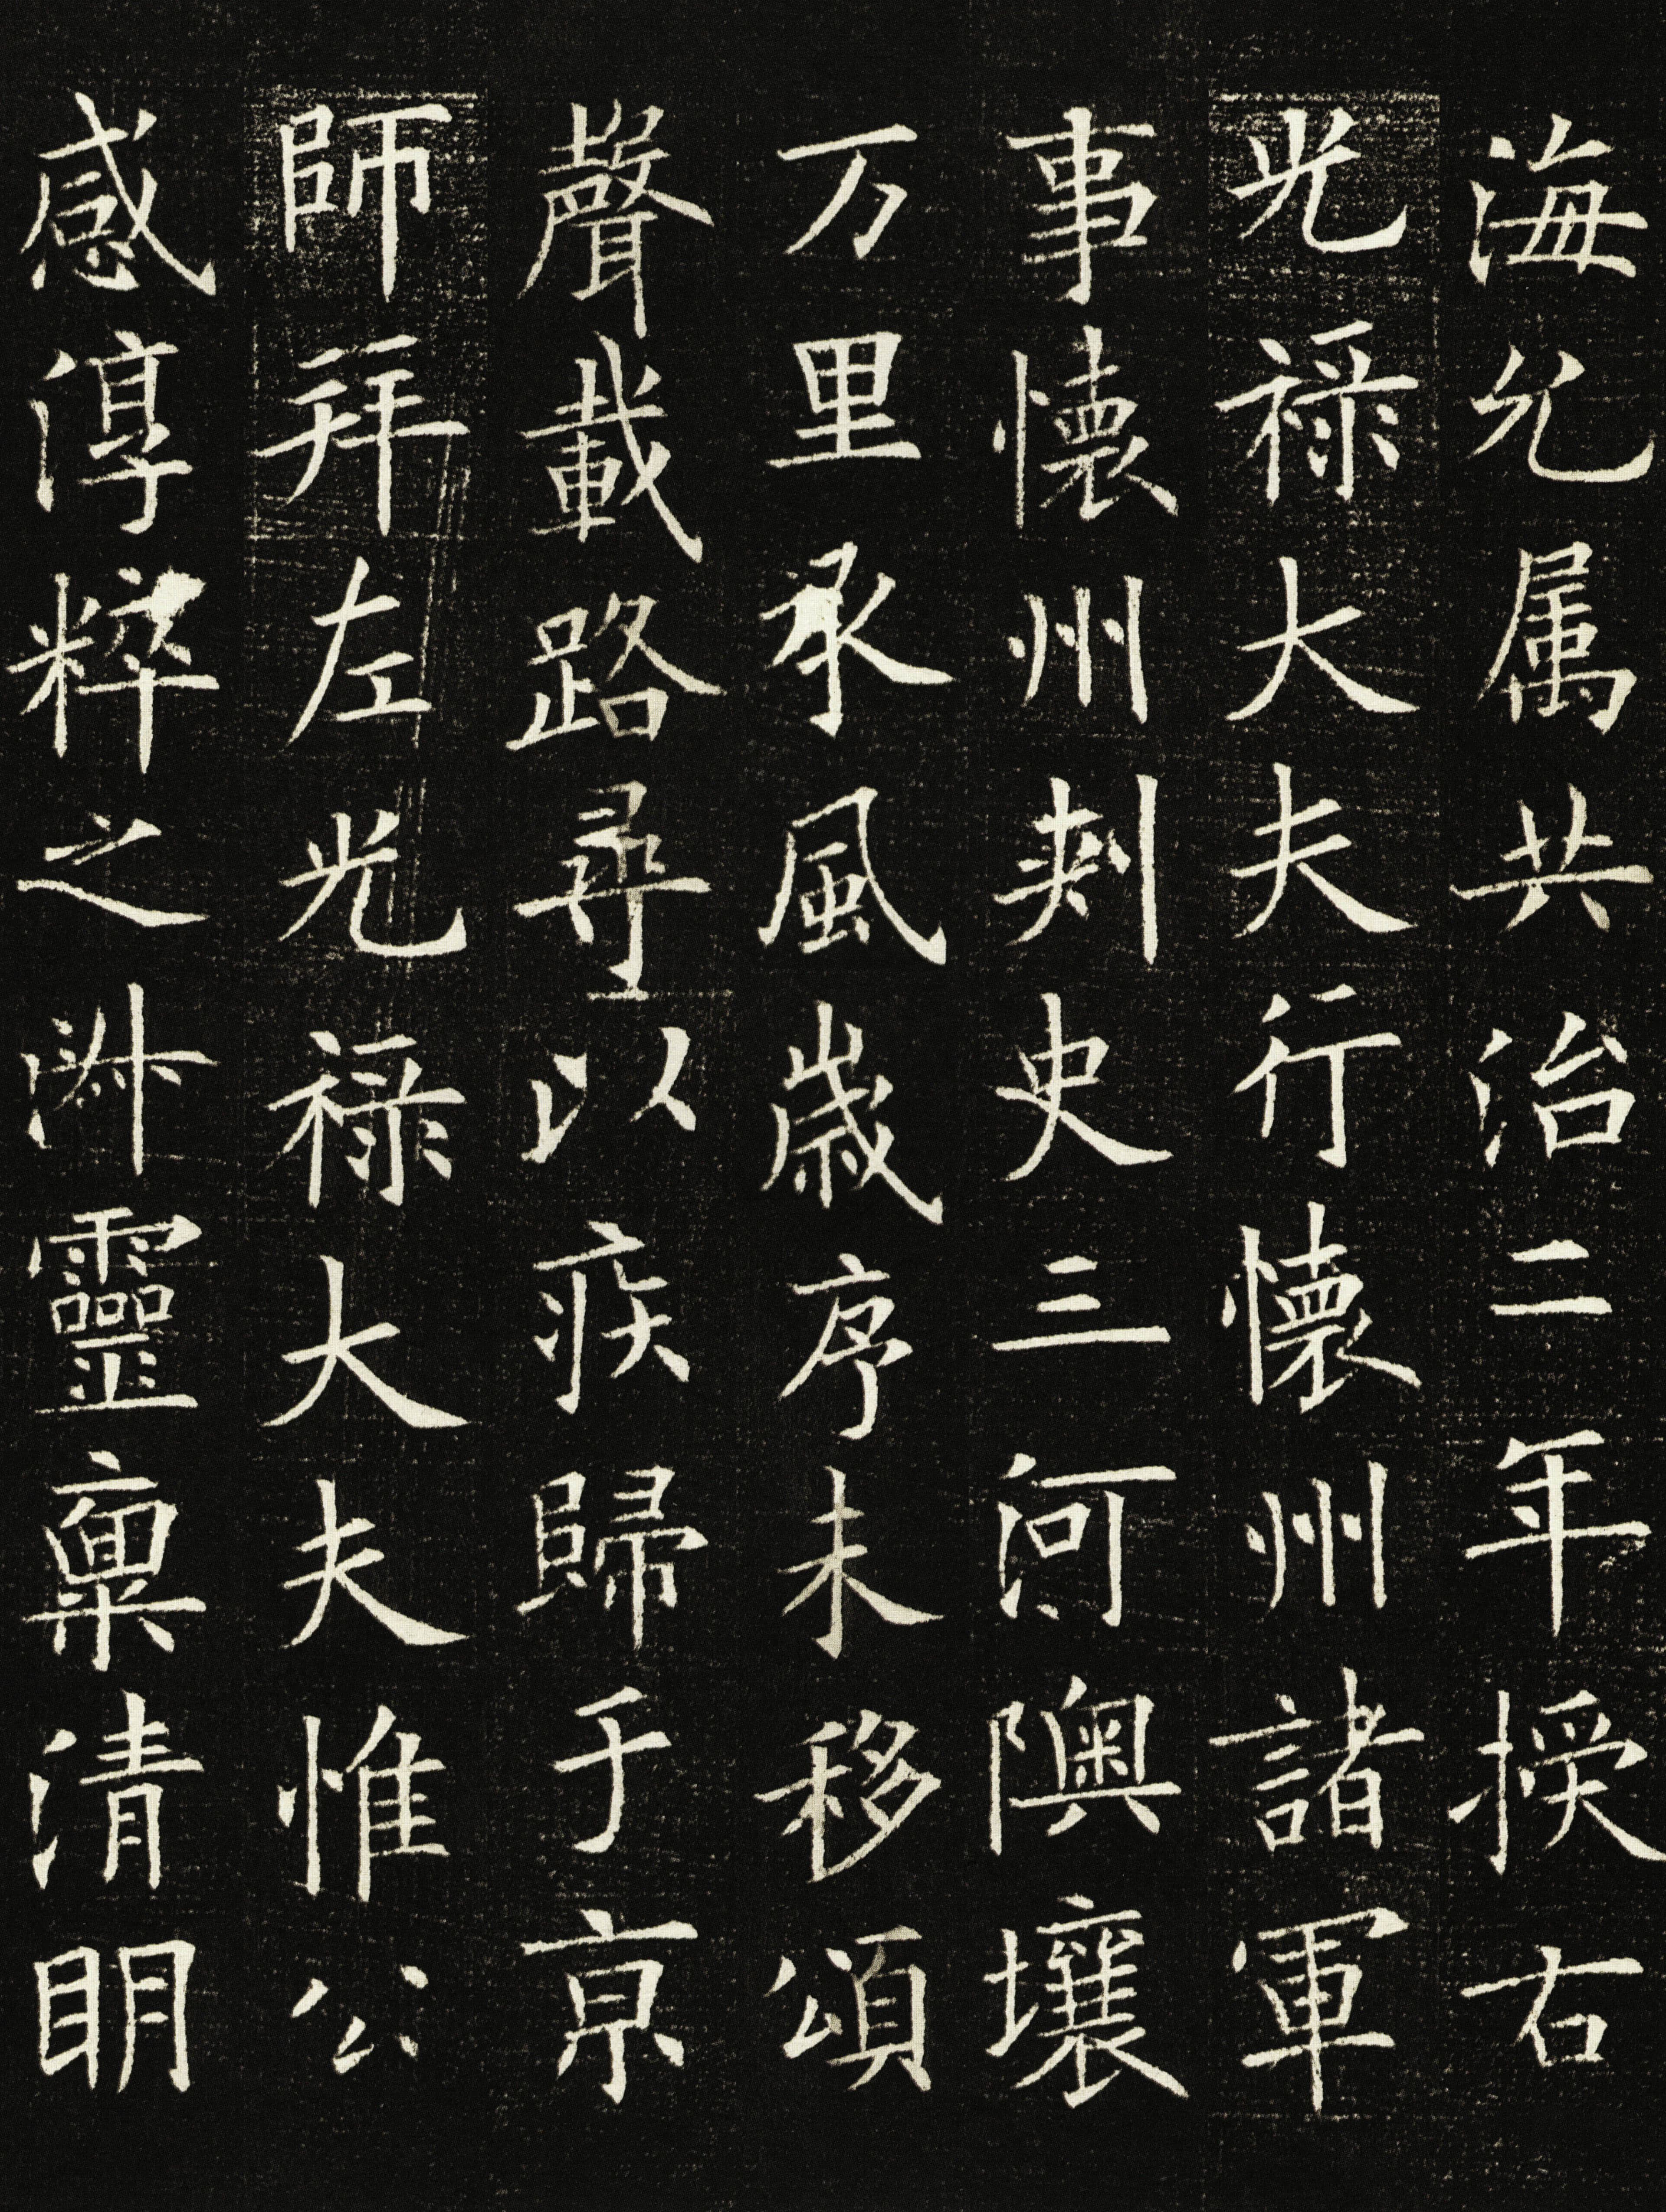 海允属共治二年授右
光禄大夫行懷州諸軍
事懷州刾史三河隩壤
万里承風歳序未移頌
聲載路尋以疾歸于亰
師拜左光禄大夫惟公
感淳粹之淑靈稟清眀